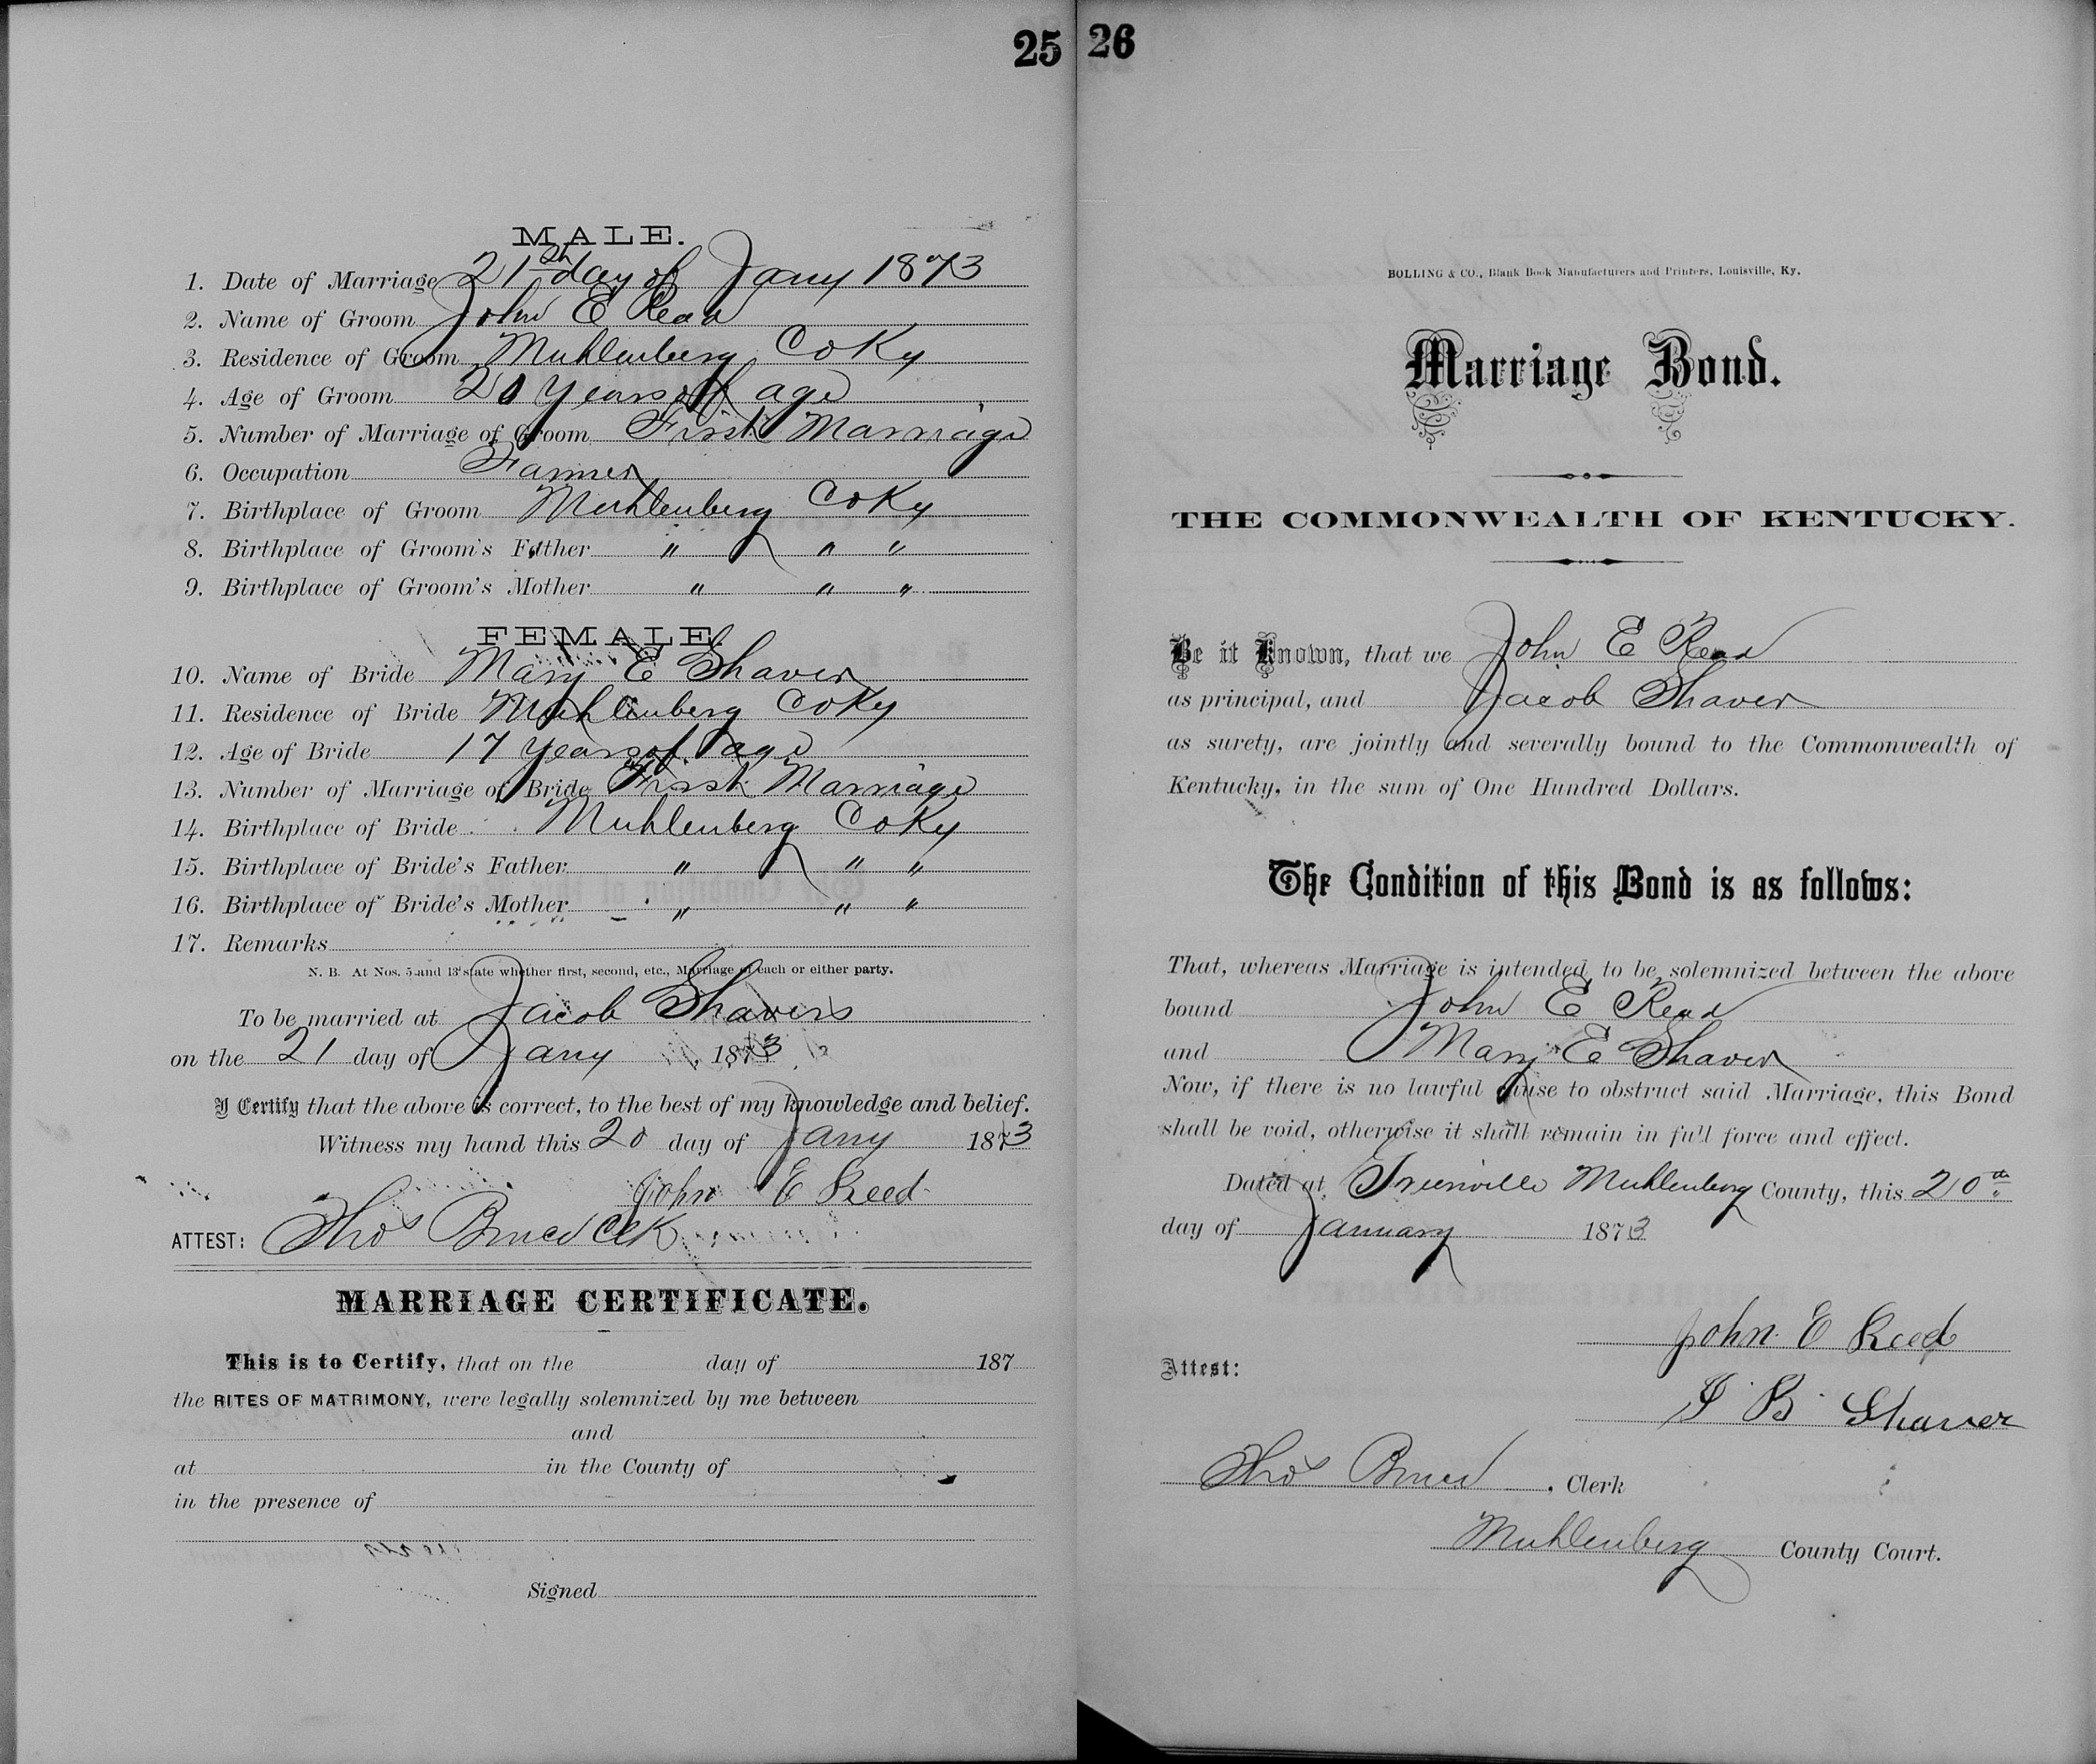 25
MALE.
1. Date of Marriage 21st day of Jany 1873
2. Name of Groom John E Read
3. Residence of Groom Muhlenberg Co Ky
4. Age of Groom 20 years of age
5. Number of Marriage of Groom First Marriage
6. Occupation Farmer
7. Birthplace of Groom Muhlenberg Co Ky
8. Birthplace of Groom's Father " " "
9. Birthplace of Groom's Mother " " "
FEMALE
10. Name of Bride Mary E Shaver
11. Residence of Bride Muhlenberg Co Ky
12. Age of Bride 17 years of age
13. Number of Marriage of Bride First Marriage
14. Birthplace of Bride Muhlenberg Co Ky
15. Birthplace of Bride's Father " " "
16. Birthplace of Bride's Mother " " "
17. Remarks
N. B. At Nos. 5 and 13 state whether first, second, etc., Marriage of each or either party.
To be married at Jacob Shavers
on the 21 day of Jany 1873
I Certify that the above is correct, to the best of my knowledge and belief.
Witness my hand this 20 day of Jany 1873
John E Reed
ATTEST: Thos Bruce Clk
MARRIAGE CERTIFICATE.
This is to Certify, that on the day of 187
the RITES OF MATRIMONY, were legally solemnized by me between
and
at in the County of
in the presence of
Signed
26
BOLLING & CO., Blank Book Manufacturers and Printers, Louisville, Ky.
Marriage Bond.
THE COMMONWEALTH OF KENTUCKY.
Be it Known, that we John E Read
as principal, and Jacob Shaver
as surety, are jointly and severally bound to the Commonwealth of
Kentucky, in the sum of One Hundred Dollars.
The Condition of this Bond is as follows:
That, whereas Marriage is intended to be solemnized between the above
bound John E Read
and Mary E Shaver
Now, if there is no lawful cause to obstruct said Marriage, this Bond
shall be void, otherwise it shall remain in full force and effect.
Dated at Greenville Muhlenberg County, this 20th
day of January 1873
John E Reed
Attest:
J B Shaver
Thos Bruce, Clerk
Muhlenberg County Court.